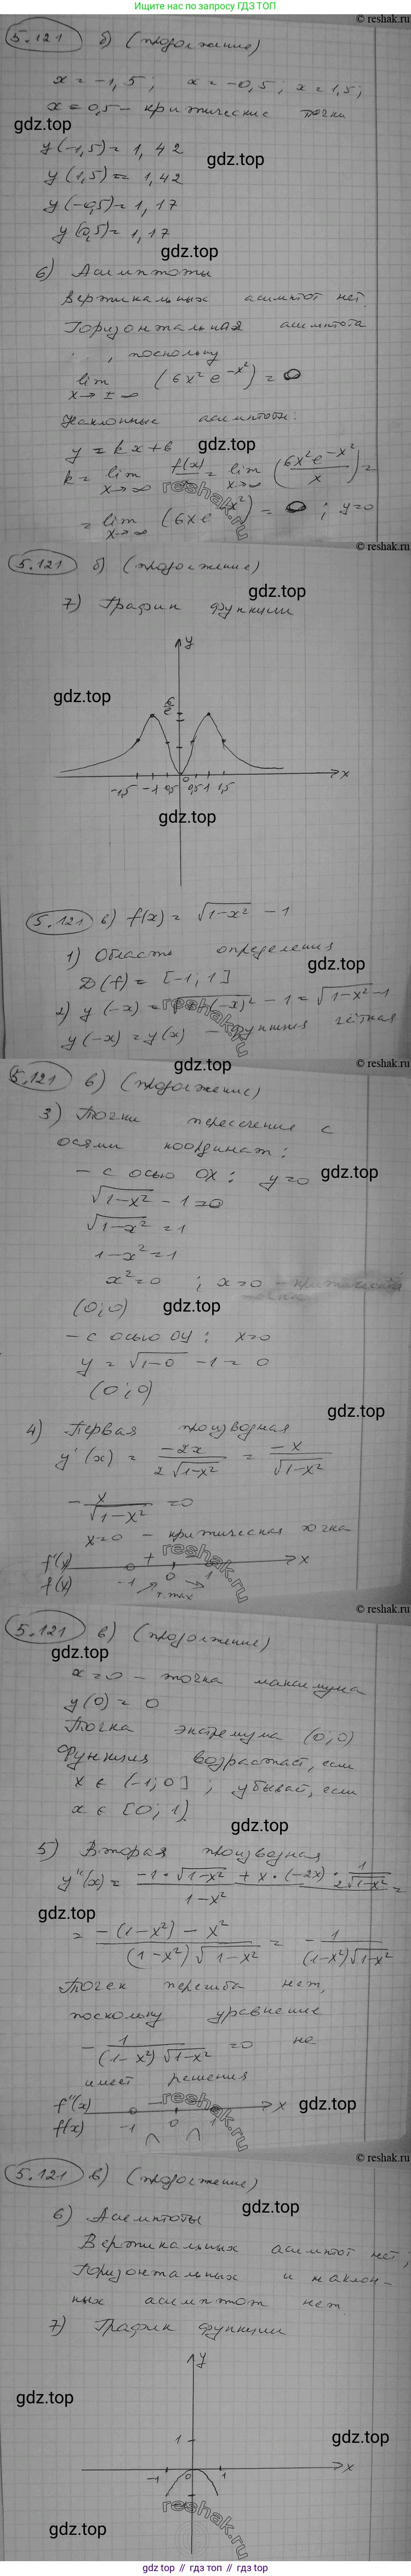 Ищите нас по запросу ГДЗ ТОП
© reshak.ru
5.121 б) (продолжение)
x = -1,5; x = -0,5; x = 1,5;
x = 0,5 - критические точки
gdz.top
y(-1,5) = 1,42
gdz.top
y(1,5) = 1,42
y(-0,5) = 1,17
y(0,5) = 1,17
gdz.top
6) Асимптоты
Вертикальных асимптот нет.
Горизонтальная асимптота
, поскольку
lim x→±∞ (6x²e^(-x²)) = 0
Наклонные асимптоты:
y = kx + b
gdz.top
k = lim x→∞ f(x)/x = lim x→∞ (6x²e^(-x²)/x) =
= lim x→∞ (6xe^(-x²)) = 0; y=0
reshak.ru
© reshak.ru
5.121 б) (продолжение)
gdz.top
7) График функции
y
gdz.top
-1,5 -1 0,5 0 0,5 1 1,5 x
gdz.top
5.121 в) f(x) = √(1-x²) - 1
1) Область определения
gdz.top
D(f) = [-1; 1]
2) y(-x) = √(1-(-x)²) - 1 = √(1-x²) - 1
reshak.ru
y(-x) = y(x) - функция чётная
gdz.top
© reshak.ru
5.121 в) (продолжение)
3) Точки пересечение с
осями координат:
- с осью OX: y=0
gdz.top
√(1-x²) - 1 = 0
√(1-x²) = 1
1-x² = 1
x² = 0; x=0 - критическая
точка
(0;0)
gdz.top
- с осью OY: x=0
y = √(1-0) - 1 = 0
(0;0)
gdz.top
4) Первая производная
y'(x) = -2x/(2√(1-x²)) = -x/√(1-x²)
-x/√(1-x²) = 0
x=0 - критическая точка
reshak.ru
f'(x) + x
f(x) -1 0 1
т.max
© reshak.ru
5.121 в) (продолжение)
gdz.top
x=0 - точка максимума
y(0) = 0
Точка экстремума (0;0)
Функция возрастает, если
x ∈ (-1;0]; убывает, если
x ∈ [0;1).
gdz.top
5) Вторая производная
y''(x) = (-1·√(1-x²) + x·(-2x)·1/(2√(1-x²)))/(1-x²) =
gdz.top
= (-(1-x²) - x²)/((1-x²)√(1-x²)) = -1/((1-x²)√(1-x²))
Точек перегиба нет,
поскольку уравнение
-1/((1-x²)√(1-x²)) = 0 не
имеет решения
reshak.ru
f''(x) - x
gdz.top
f(x) -1 0 1
© reshak.ru
5.121 в) (продолжение)
gdz.top
6) Асимптоты
Вертикальных асимптот нет;
Горизонтальных и наклон-
ных асимптот нет.
7) График функции
y
gdz.top
1
gdz.top
-1 0 1 x
reshak.ru
gdz.top
gdz.top // гдз.топ // gdz.top